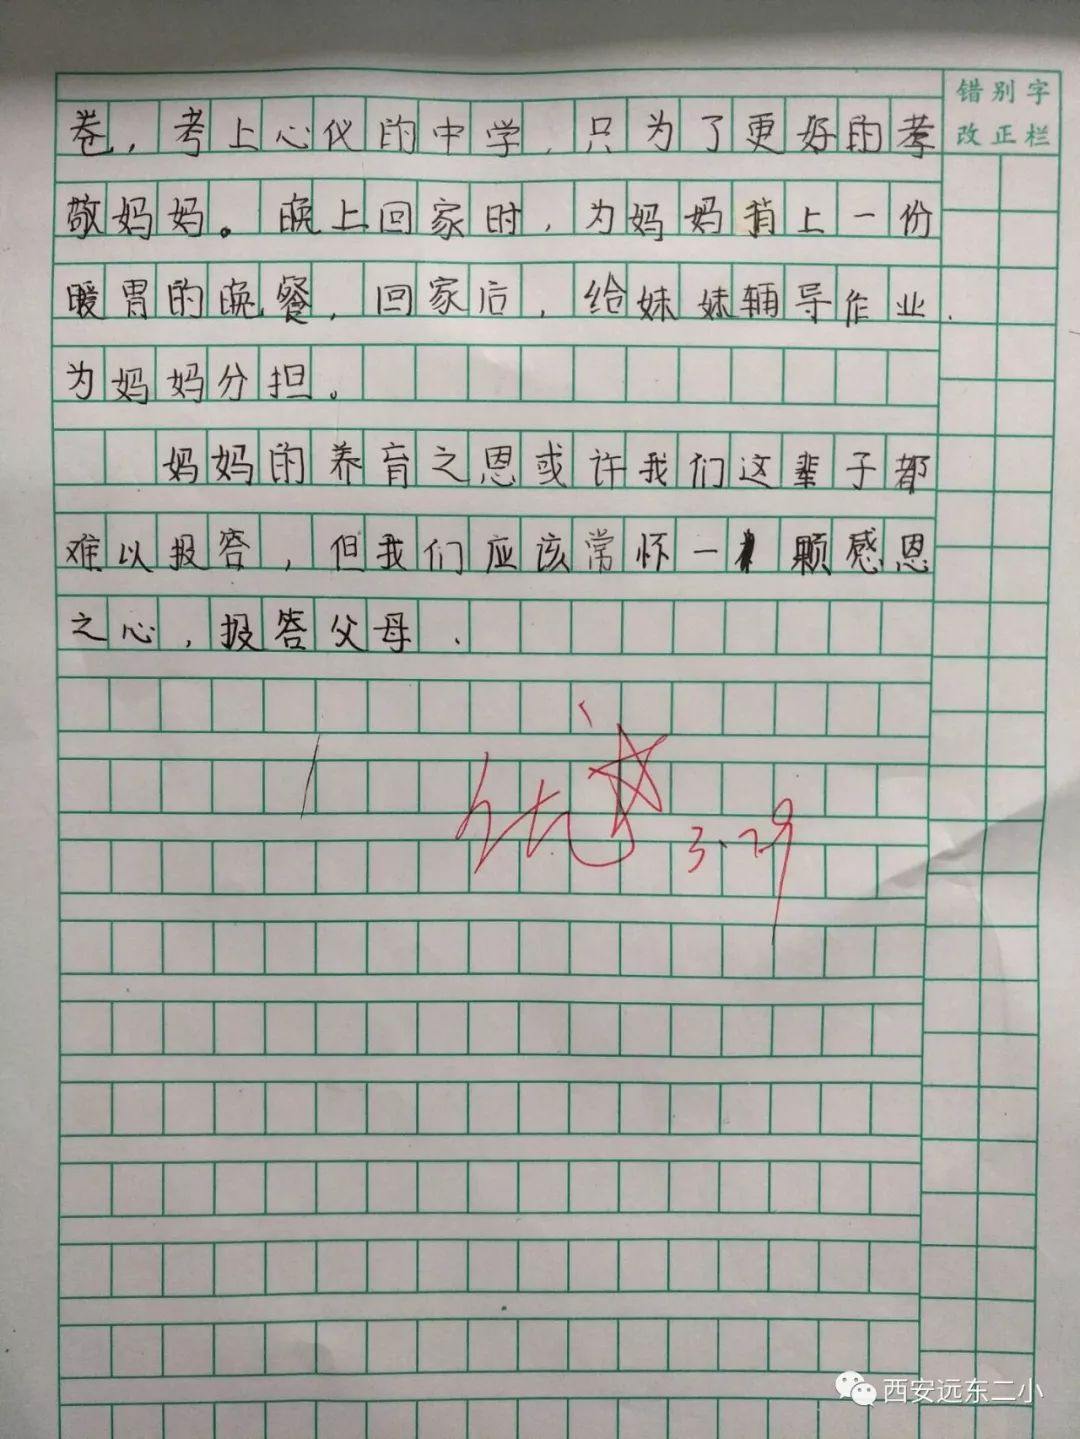 错别字
改正栏
卷，考上心仪的中学，只为了更好的孝
敬妈妈。晚上回家时，为妈妈捎上一份
暖胃的晚餐，回家后，给妹妹辅导作业.
为妈妈分担。
妈妈的养育之恩或许我们这辈子都
难以报答，但我们应该常怀一颗感恩
之心，报答父母.
优
3.29
西安远东二小